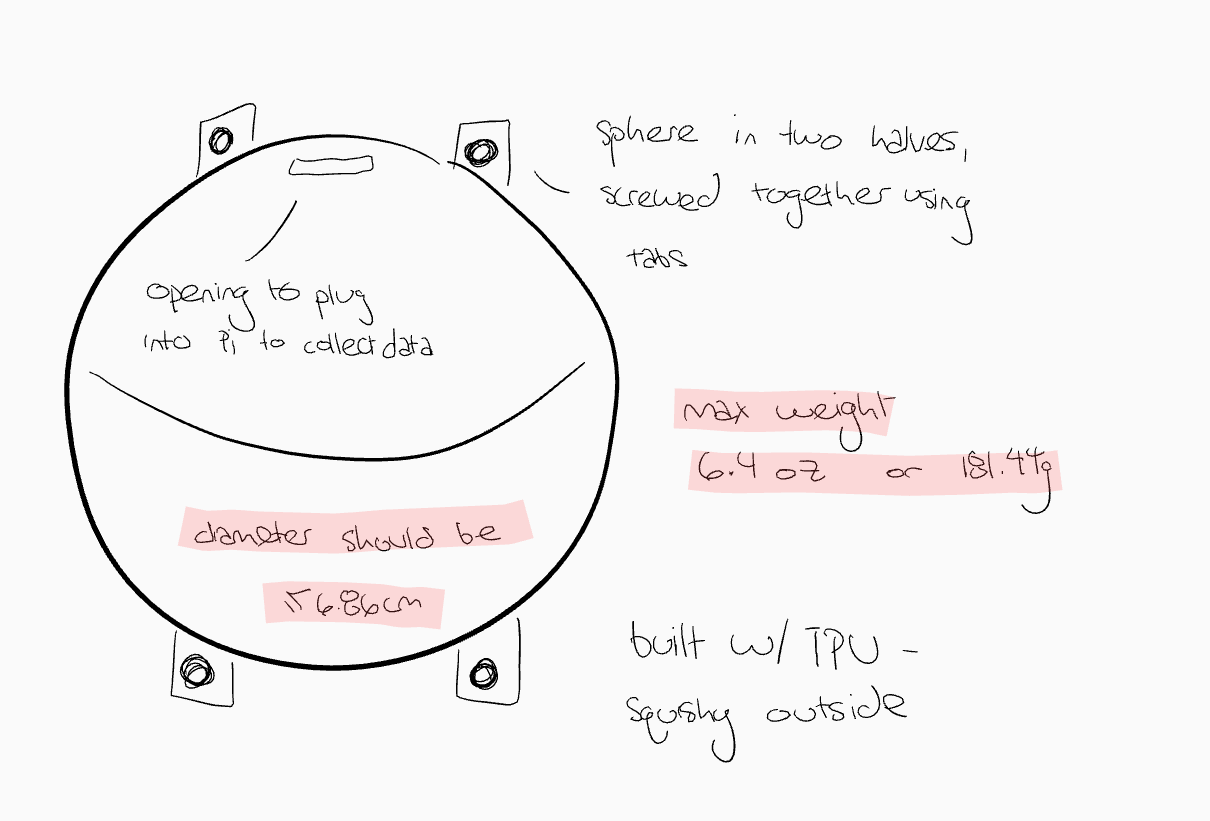 sphere in two halves,
screwed together using
tabs
opening to plug
into Pi to collect data
max weight
6.4 oz or 181.44g
diameter should be
≤ 6.86cm
built w/ TPU -
squishy outside